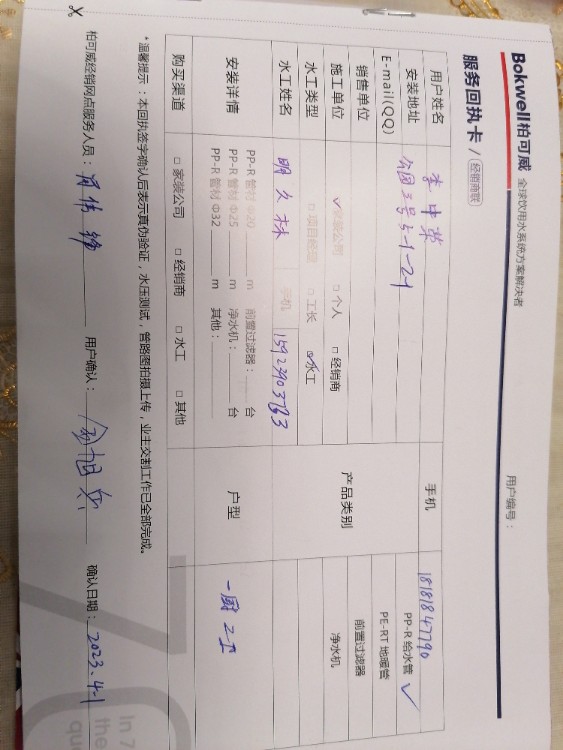 Bokwell柏可威 全球饮用水系统方案解决者
服务回执卡 / 经销商联
用户编号：
用户姓名 李中荣 手机 18181847790
安装地址 公园王号5-1-24
E-mail(QQ)
产品类别 PP-R 给水管 ✓
PE-RT 地暖管
前置过滤器
净水机
销售单位
施工单位 ✓家装公司 □ 个人 □ 经销商
水工类型 □ 项目经理 □ 工长 ☑水工
水工姓名 明久林 手机 15923903763
安装详情 PP-R 管材 Φ20 m 前置过滤器： 台
PP-R 管材 Φ25 m 净水机： 台
PP-R 管材 Φ32 m 其他：
户型 一厨二卫
购买渠道 □ 家装公司 □ 经销商 □ 水工 □ 其他
* 温馨提示：本回执签字确认后表示真伪验证，水压测试，管路图拍摄上传，业主交割工作已全部完成。
柏可威经销网点服务人员： 用户确认： 确认日期：2023.4-1
In 7
the
qu